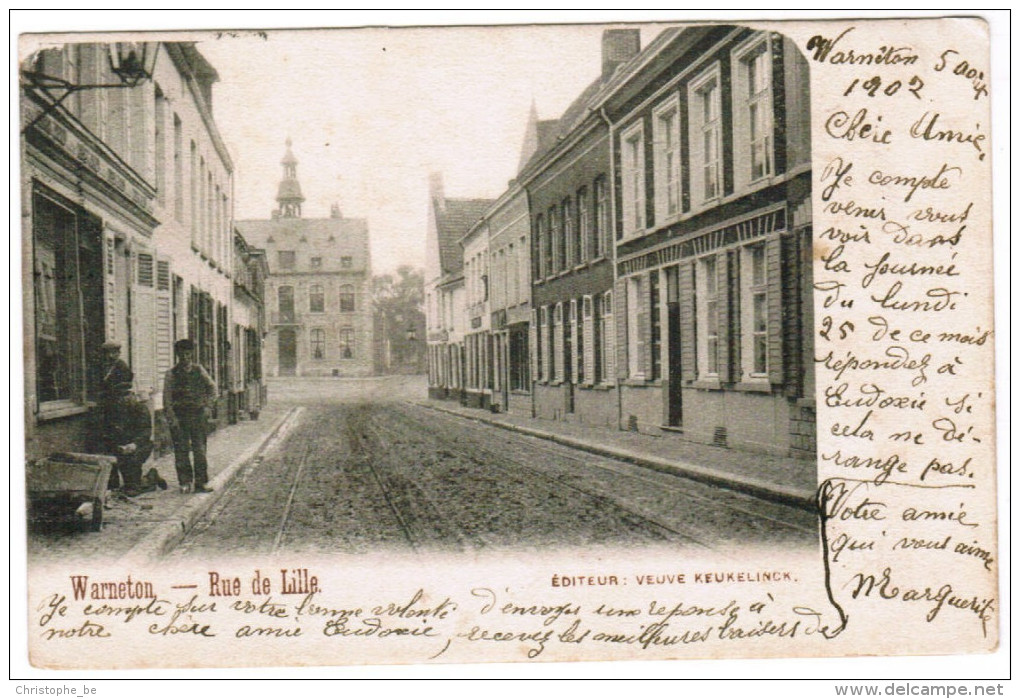 Warnêton 5 août
1902
Chère Amie,
Je compte
venir vous
voir dans
la journée
du lundi
25 de ce mois
répondez à
Eudoxie si
cela ne dé-
range pas.
Votre amie
qui vous aime
Marguerite
Warneton — Rue de Lille.
ÉDITEUR : VEUVE KEUKELINCK.
Je compte sur votre bonne volonté d'envoyer une réponse à
notre chère amie Eudoxie, recevez les meilleures baisers de
Christophe_be
www.delcampe.net